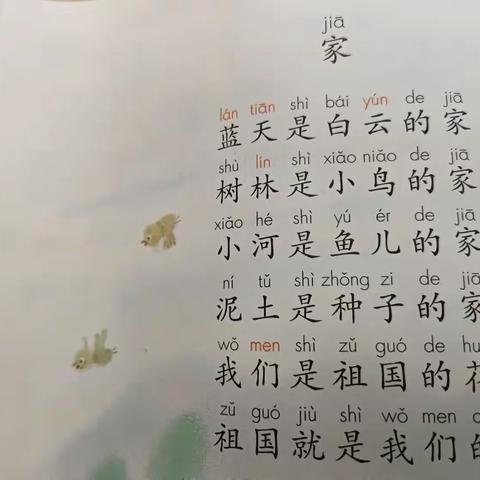 jiā
家
lán tiān shì bái yún de jiā
蓝天是白云的家
shù lín shì xiǎo niǎo de jiā
树林是小鸟的家
xiǎo hé shì yú ér de jiā
小河是鱼儿的家
ní tǔ shì zhǒng zi de jiā
泥土是种子的家
wǒ men shì zǔ guó de hu
我们是祖国的花
zǔ guó jiù shì wǒ men d
祖国就是我们的